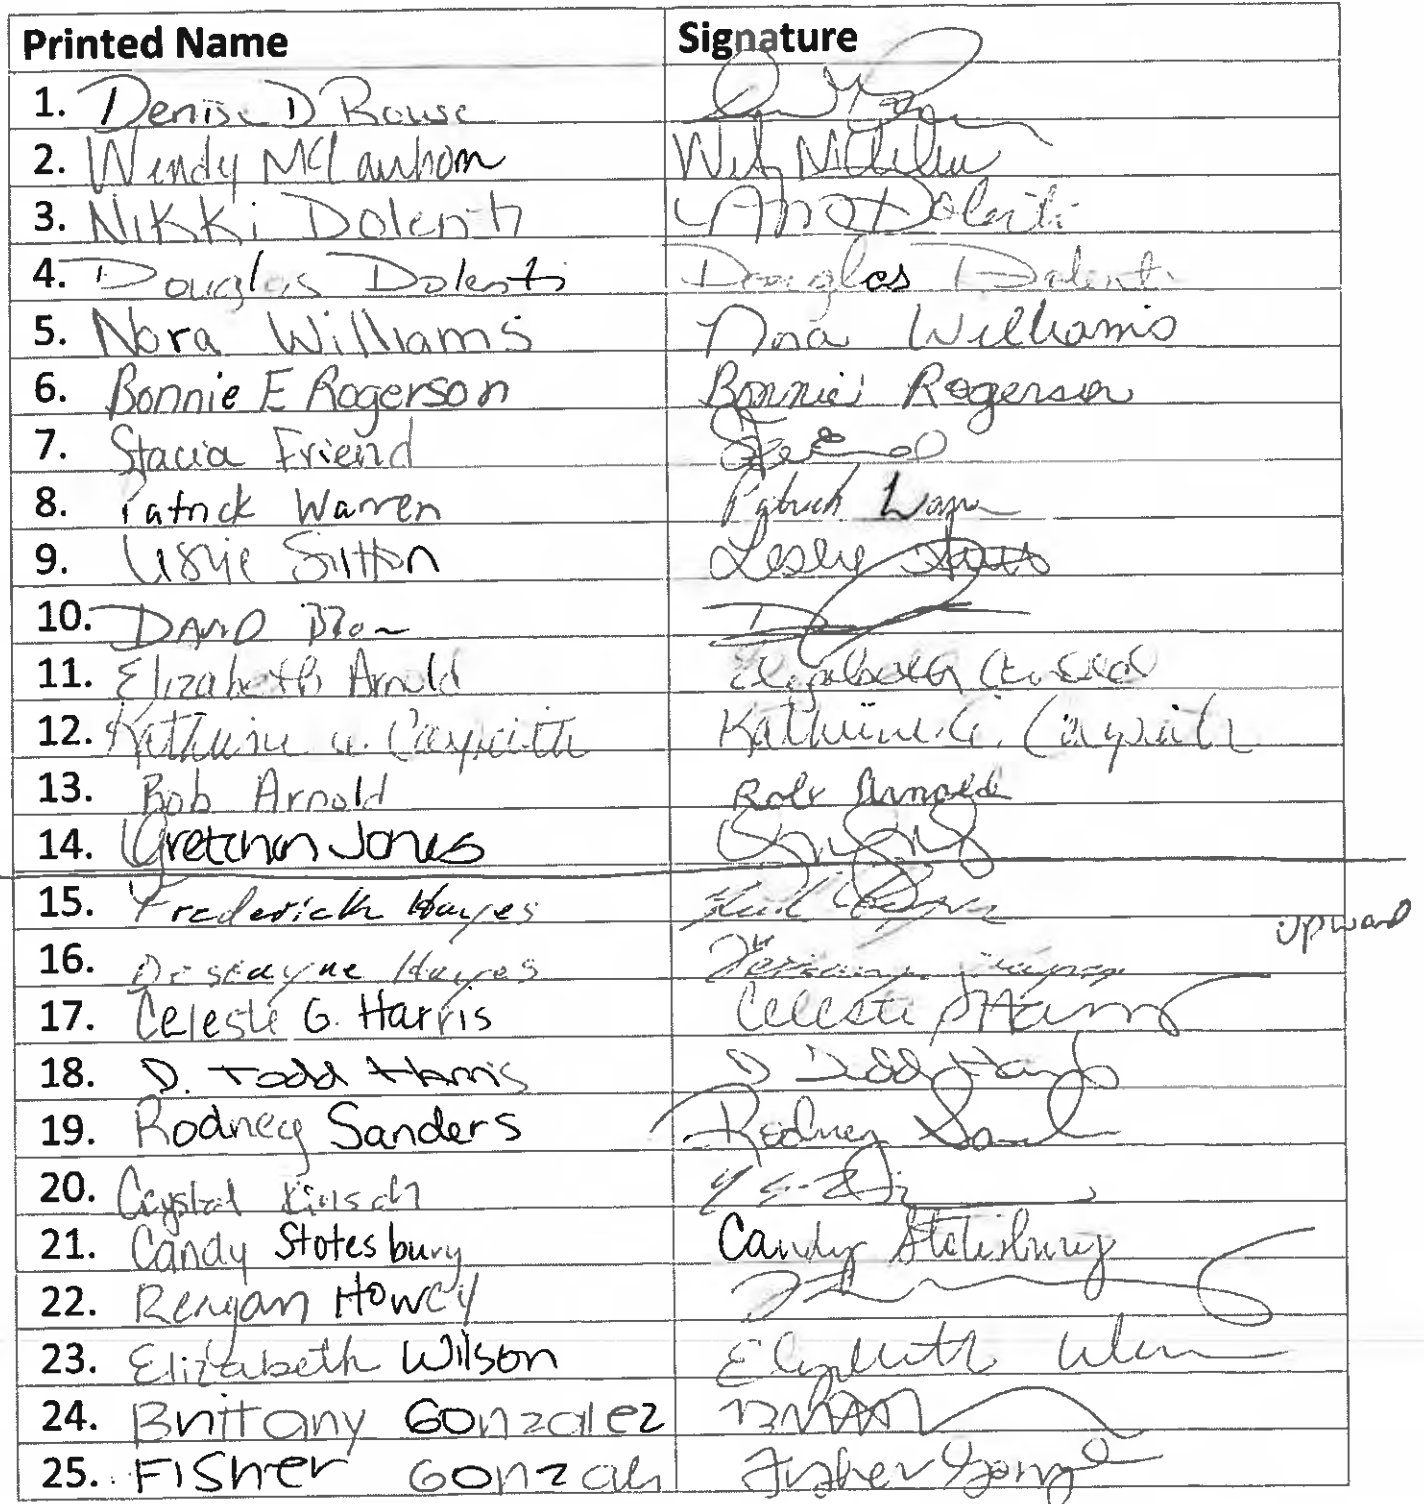 Printed Name Signature
1. Denise D Rouse
2. Wendy McLawhorn
3. Nikki Dolenti Dolenti
4. Douglas Dolenti Douglas Dolenti
5. Nora Williams Nora Williams
6. Bonnie E Rogerson Bonnie Rogerson
7. Stacia Friend
8. Patrick Warren Patrick Warren
9. Leslie Sitton Leslie
10. David
11. Elizabeth Arnold Elizabeth Arnold
12. Katherine G. Katherine G.
13. Bob Arnold Bob Arnold
14. Gretchen Jones
15. Frederick Hayes
upward
16. Hayes
17. Celeste G. Harris Celeste Harris
18. D. Todd Harris D Todd Harris
19. Rodney Sanders Rodney
20. Crystal
21. Candy Stotesbury Candy Stotesbury
22. Reagan Howey
23. Elizabeth Wilson Elizabeth
24. Brittany Gonzalez
25. Fisher Fisher